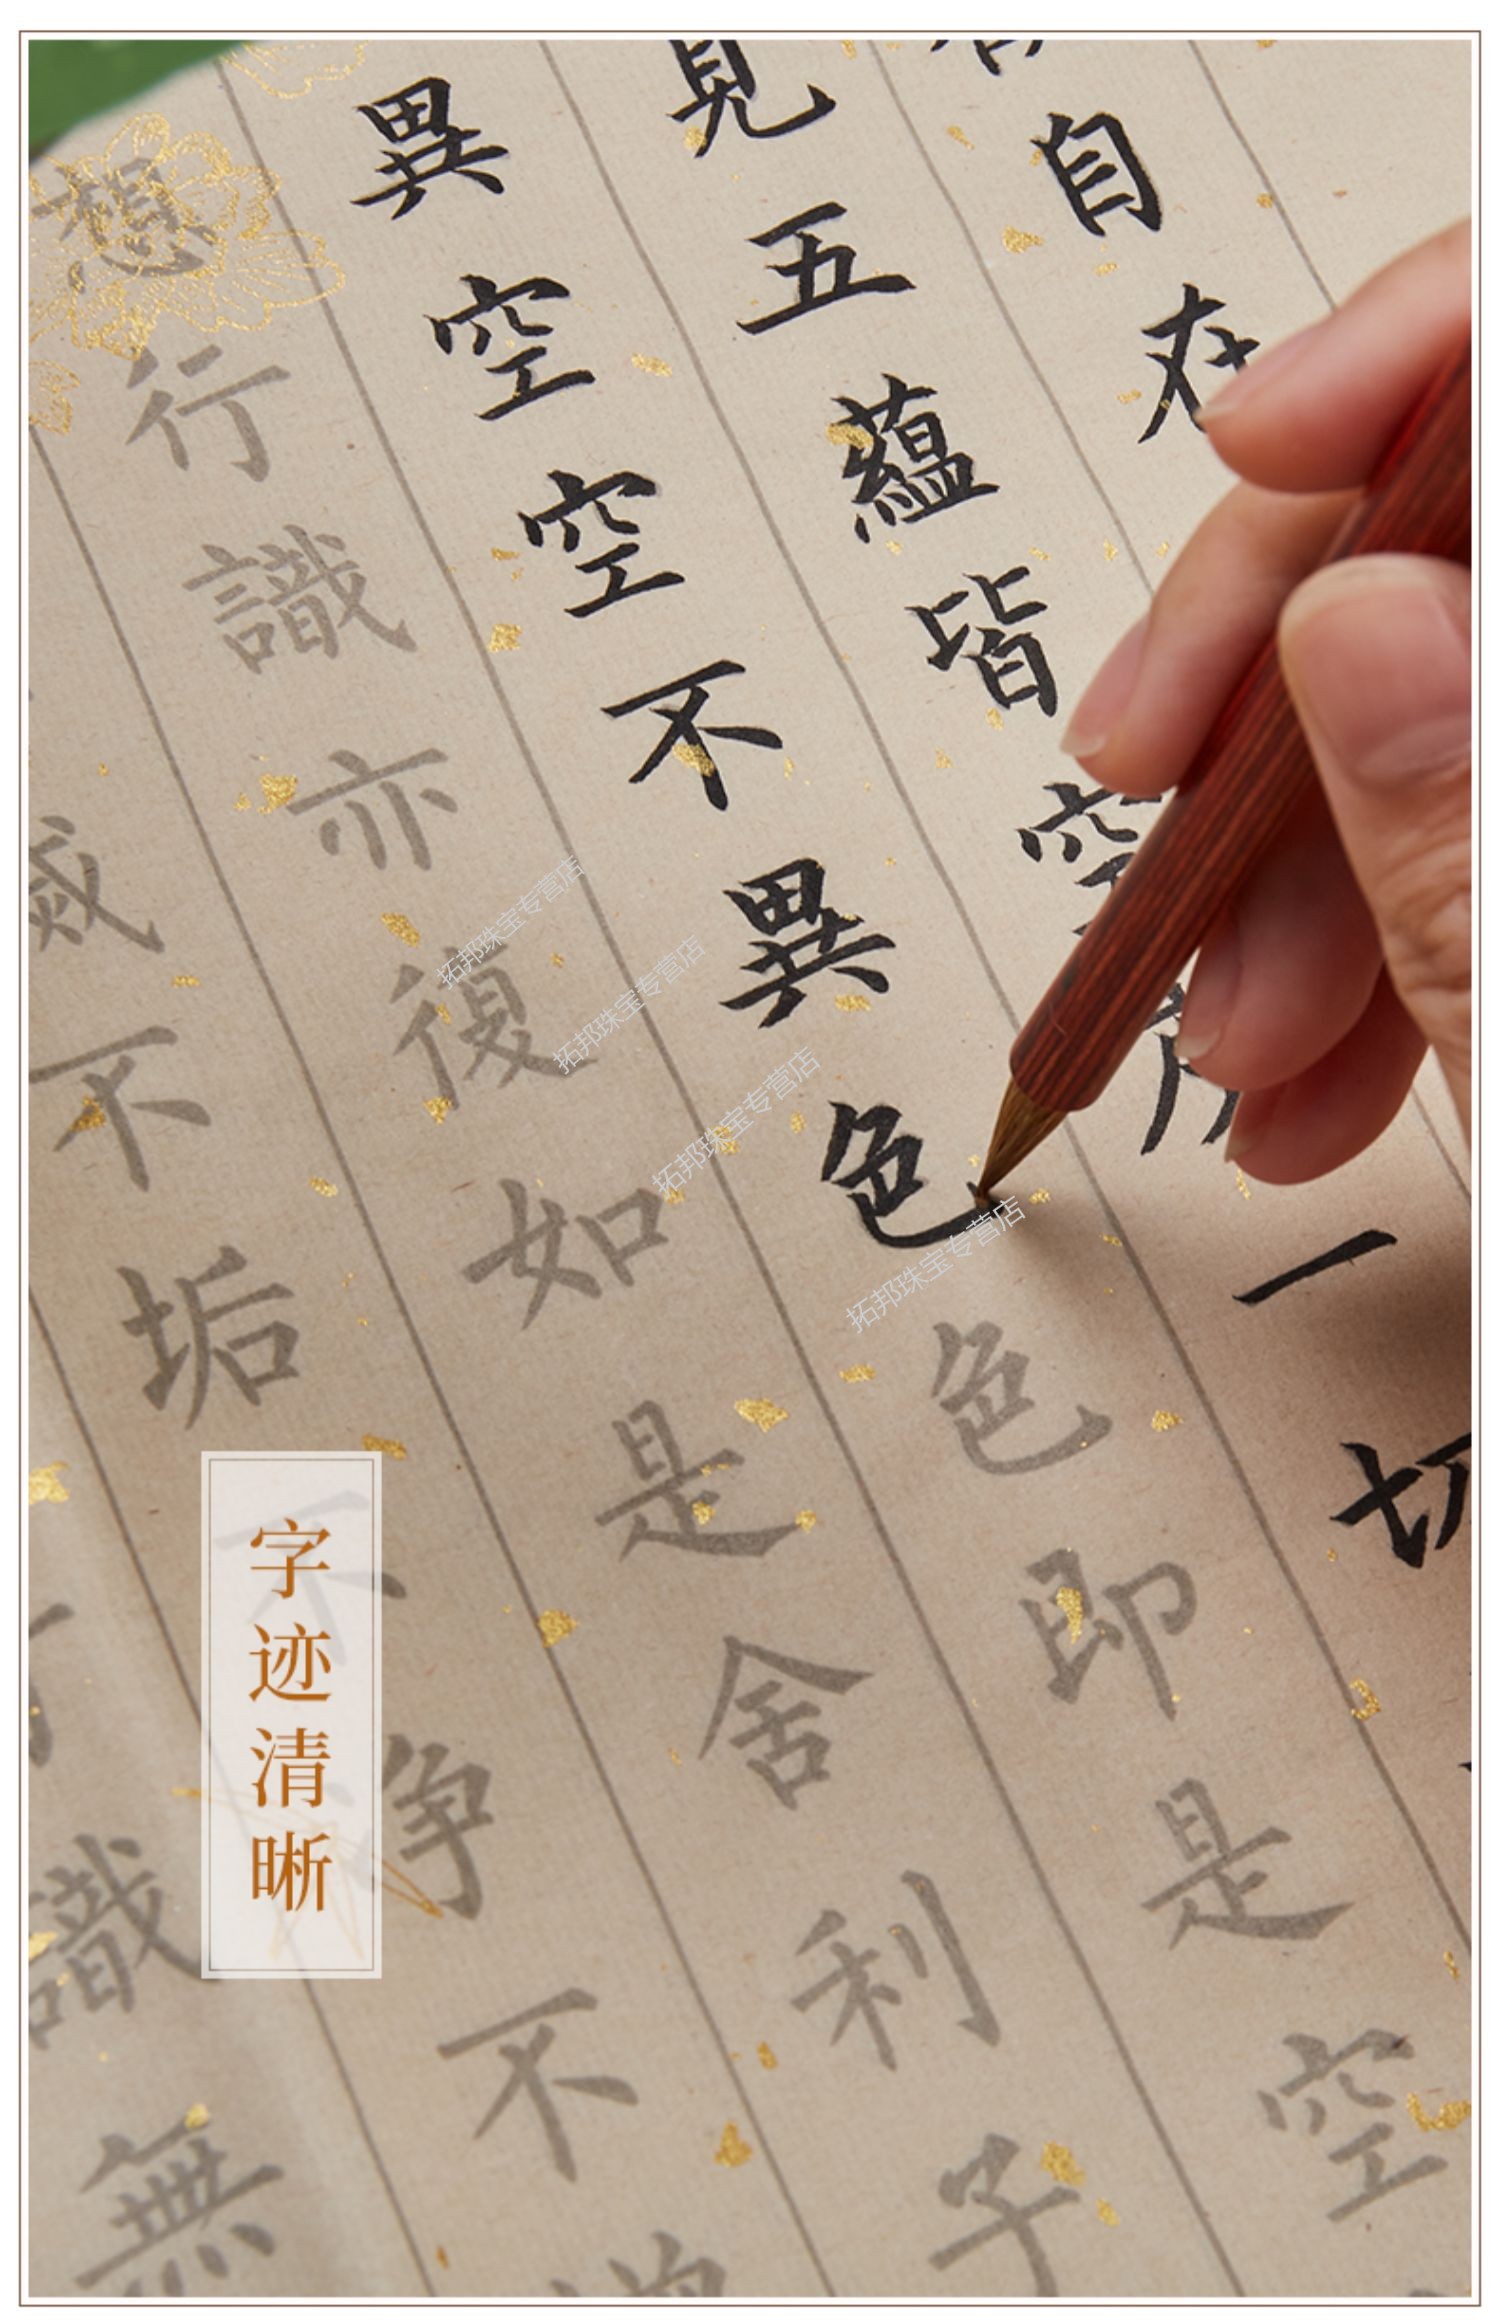 自在
見五蘊皆空度一切
異空空不異色色即是空
想行識亦復如是舍利子
滅不垢不淨不
識無
字迹清晰
拓邦珠宝专营店
拓邦珠宝专营店
拓邦珠宝专营店
拓邦珠宝专营店